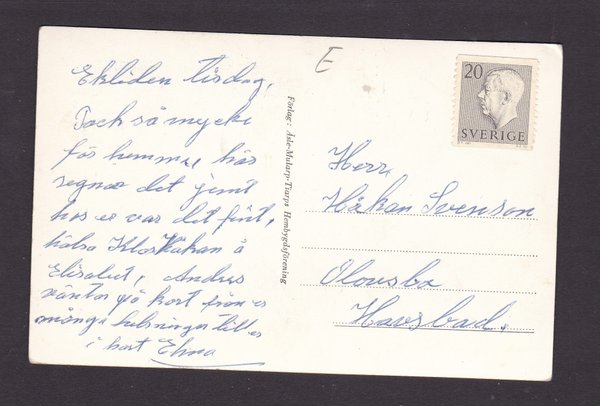 Ekliden tisdag,
Tack så mycke
för hemma, här
regnar det jämt
hos er var det fint,
hälsa Klas Håkan å
Elisabet, Andres
väntar på kort från er
många helsningar till er
i hast Elna
E
Förlag: Åsle-Mularp-Tiarps Hembygdsförening
20
SVERIGE
Herr
Håkan Svenson
Havsbad.